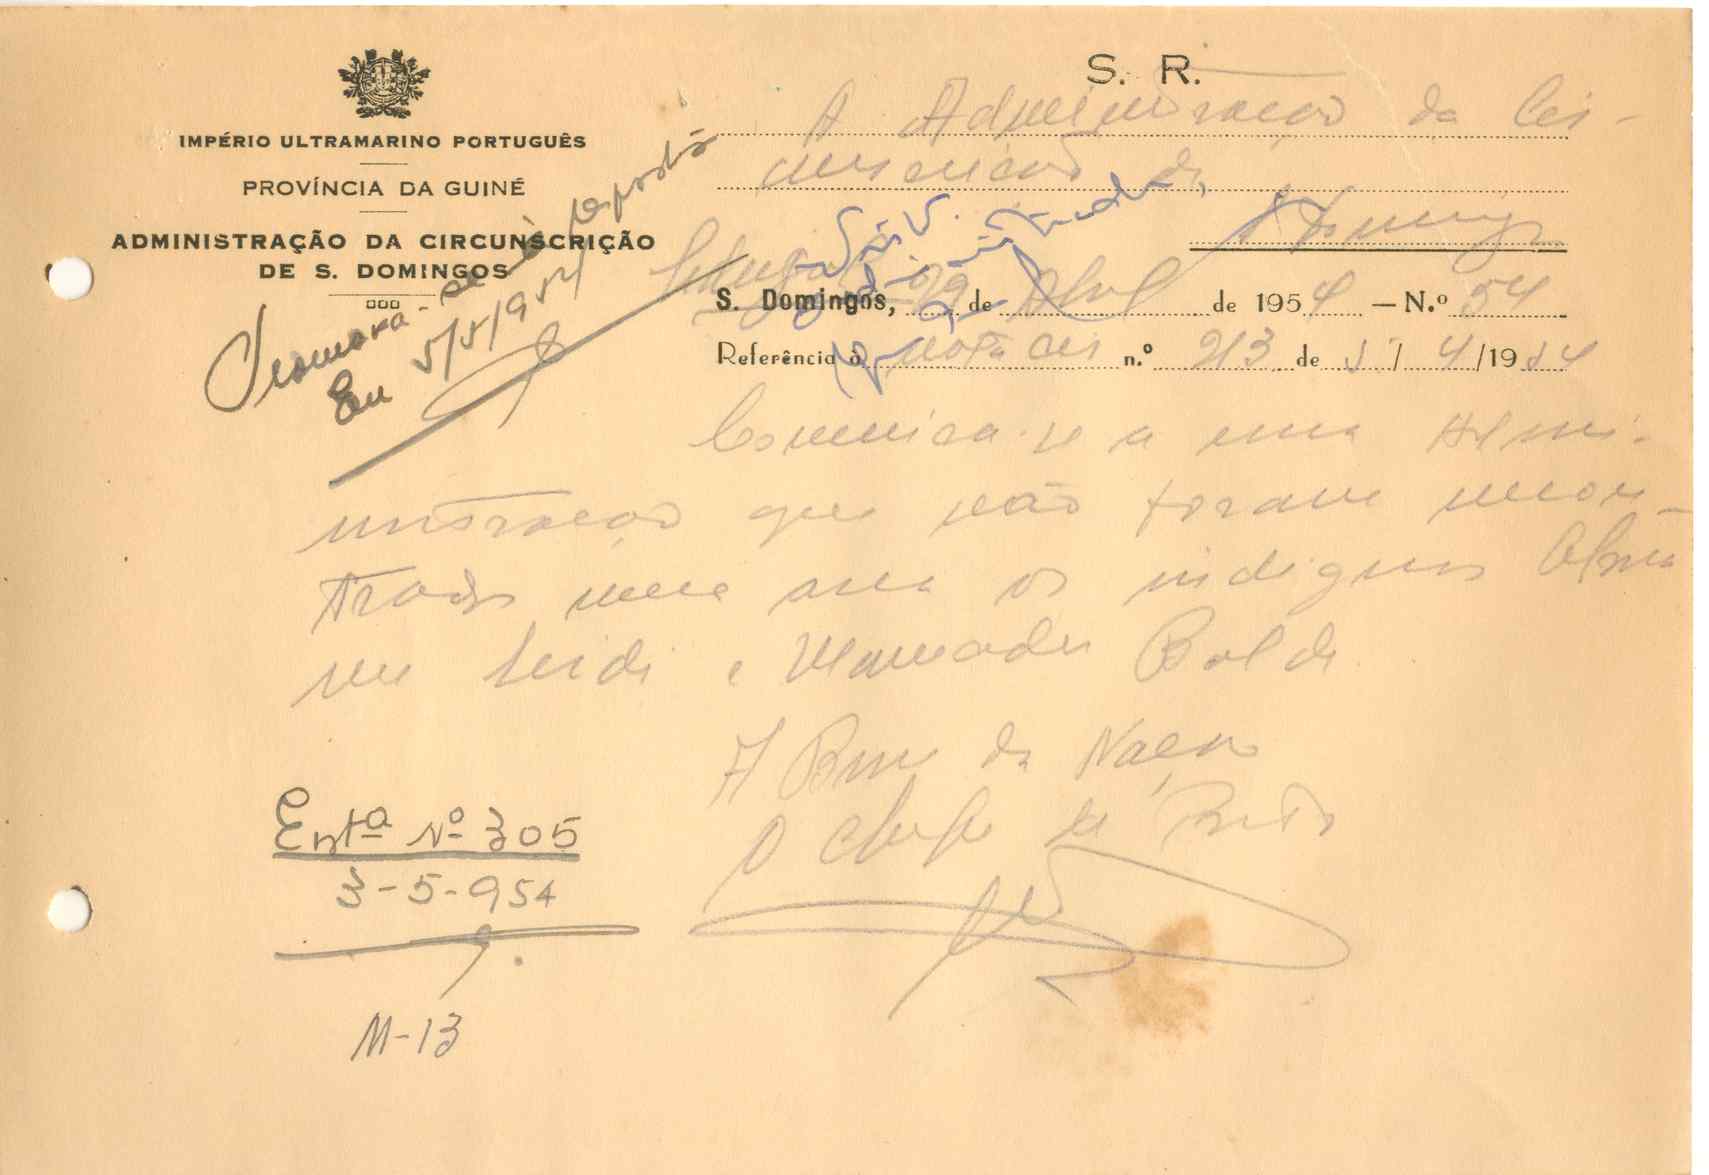 S. R.
IMPÉRIO ULTRAMARINO PORTUGUÊS
PROVÍNCIA DA GUINÉ
ADMINISTRAÇÃO DA CIRCUNSCRIÇÃO
DE S. DOMINGOS
A Administração da Cir-
cunscrição de
S. Domingos
S. Domingos, 29 de Abril de 1954 — N.º 54
Referência à nota n.º 213 de 5/4/1954
Em 5/5/954 resposta
Comunica-se a essa Admi-
nistração que não foram encon-
trados nesta area os indigenas
Seidi e Mamadu Balde
A Bem da Nação
O Chefe de Posto
Entª Nº 305
3-5-954
M-13